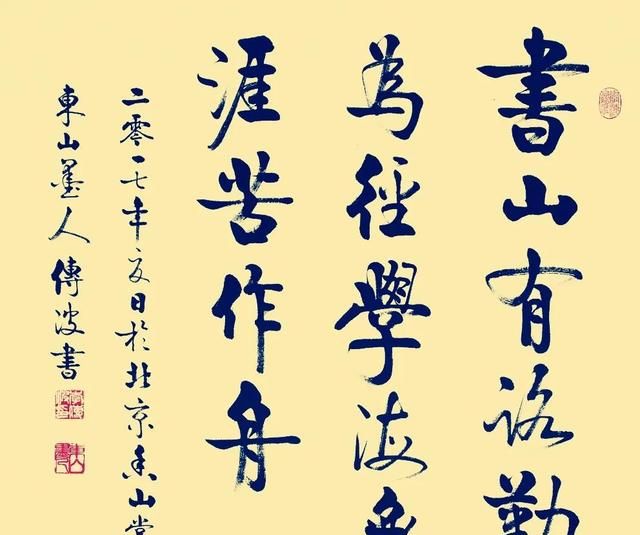 書山有路勤
為徑學海無
涯苦作舟
二零一七年夏日於北京香山堂
東山墨人傳波書